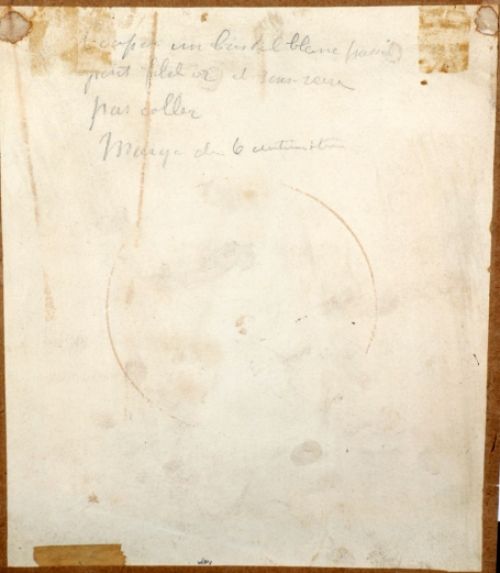 Couper un bristol blanc
petit filet or et sous verre
pas coller
Marge de 6 centimètres